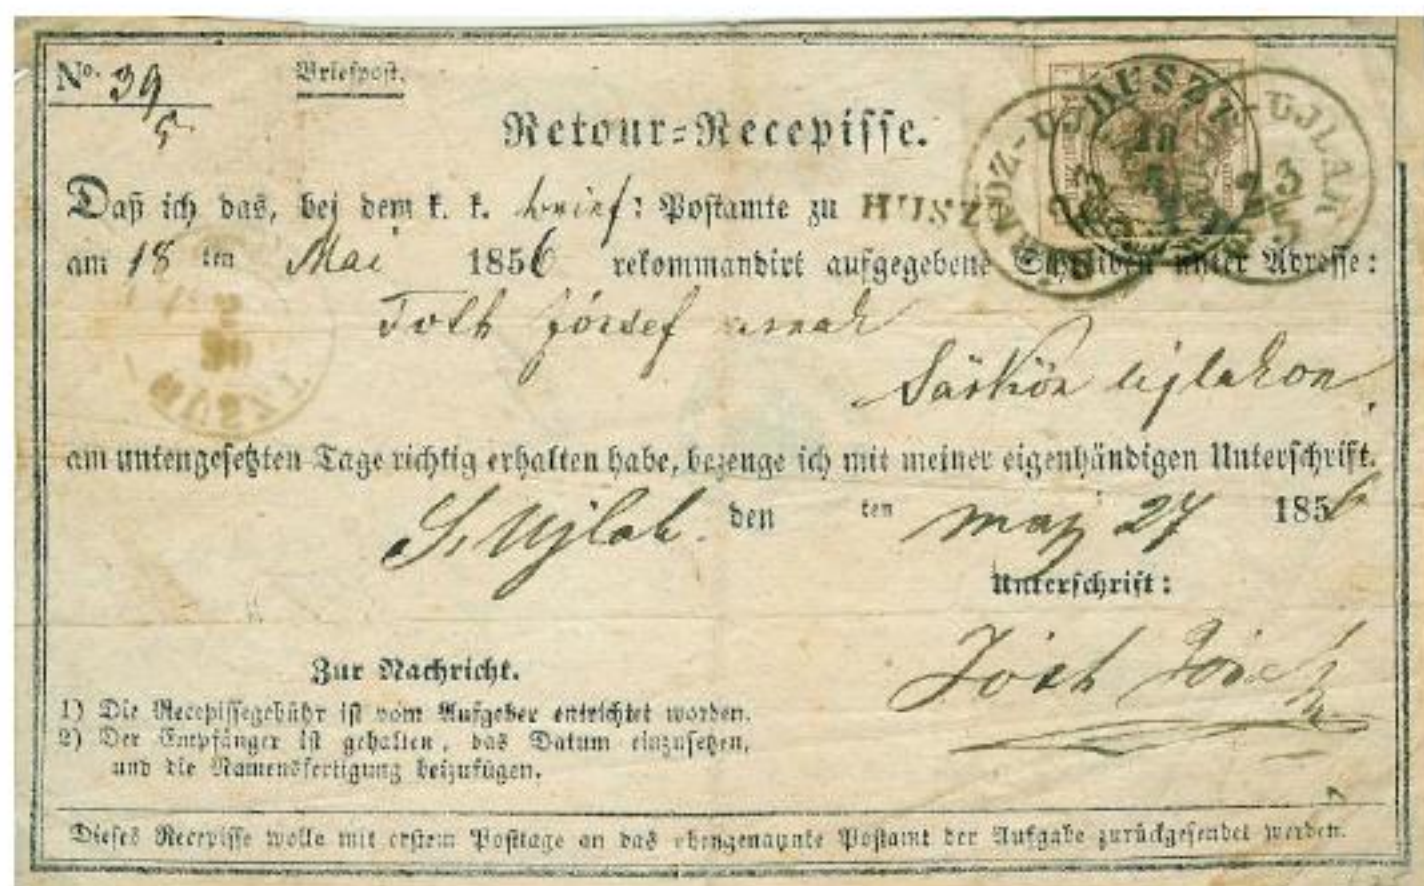 No. 39
5
Briefpost.
Retour-Recepisse.
Daß ich das, bei dem k. k. brief: Postamte zu HUSZ
am 18 ten Mai 1856 rekommandirt aufgegebene Schreiben unter Adresse:
Toth József
Sárköz Ujlakon
am untengesetzten Tage richtig erhalten habe, bezeuge ich mit meiner eigenhändigen Unterschrift.
S. Ujlak den ten maj 27 1856
Unterschrift:
Tóth
Zur Nachricht.
1) Die Recepissegebühr ist vom Aufgeber entrichtet worden.
2) Der Empfänger ist gehalten, das Datum einzusetzen,
und die Namensfertigung beizufügen.
Dieses Recepisse wolle mit erstem Posttage an das obengenannte Postamt der Aufgabe zurückgesendet werden.
HUSZT
18
5
-UJLAK
23
5